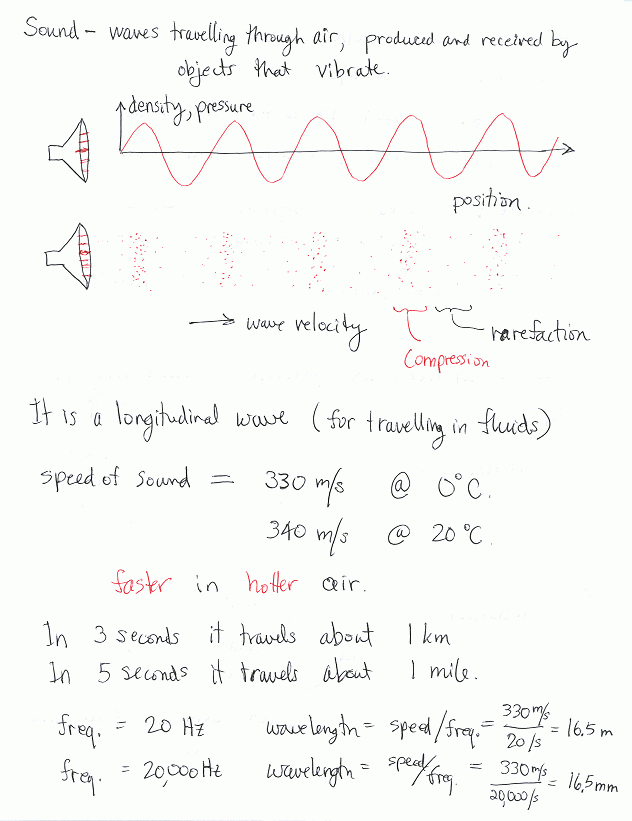 Sound – waves travelling through air, produced and received by
objects that vibrate.
density, pressure
position.
→ wave velocity
rarefaction
Compression
It is a longitudinal wave (for travelling in fluids)
speed of sound = 330 m/s @ 0°C.
340 m/s @ 20 °C.
faster in hotter air.
In 3 seconds it travels about 1 km
In 5 seconds it travels about 1 mile.
freq. = 20 Hz wavelength = speed/freq. = 330 m/s / 20 /s = 16.5 m
freq. = 20,000 Hz wavelength = speed/freq. = 330 m/s / 20,000/s = 16.5 mm